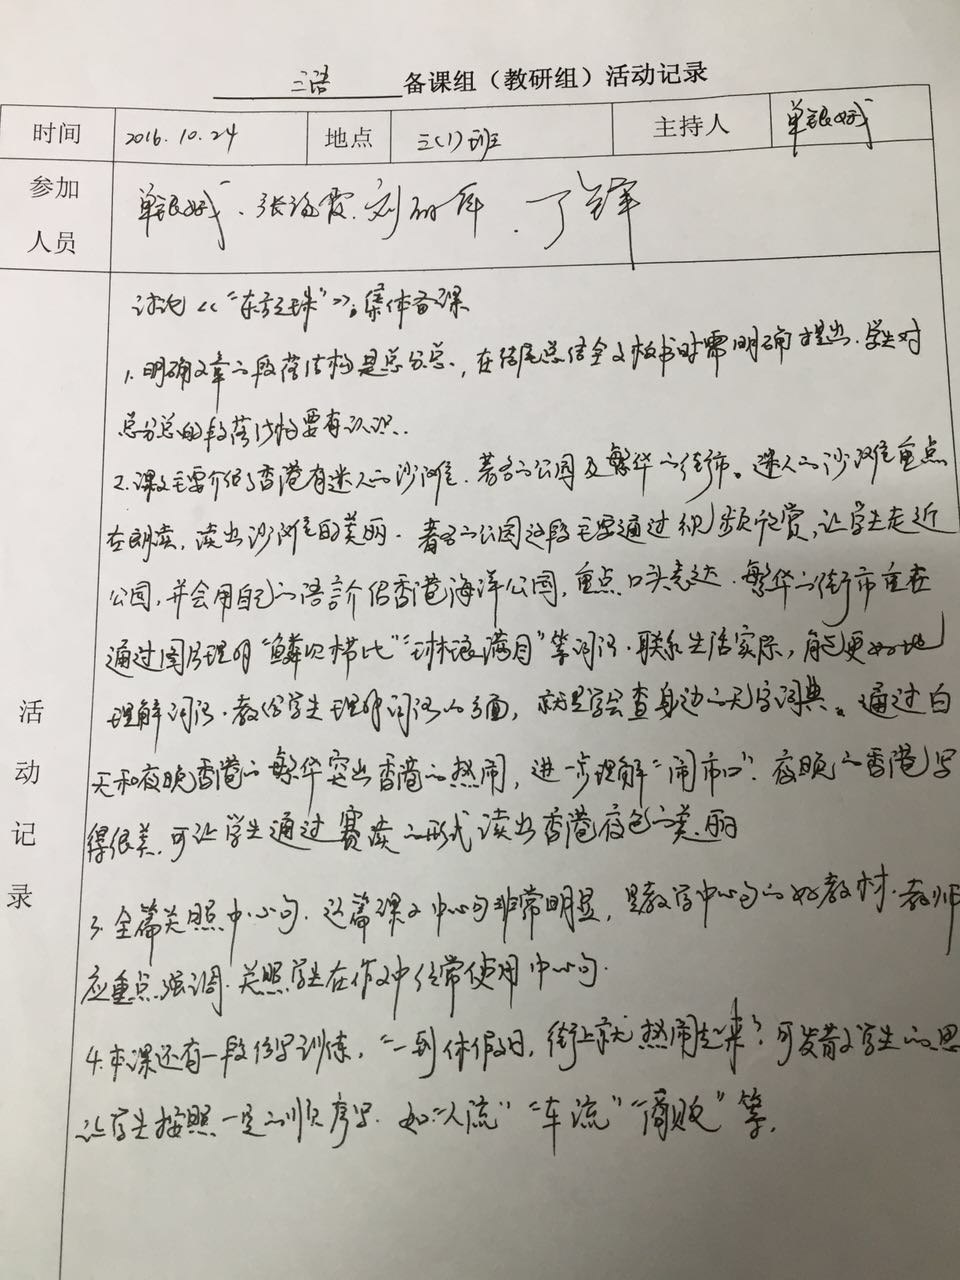 三语 备课组（教研组）活动记录
时间 2016.10.24 地点 三(1)班 主持人 单银娥
参加人员 单银娥、张 霞、刘 、丁锋
活动记录
讨论《“东方之珠”》，集体备课
1. 明确文章的段落结构是总分总，在结尾总结全文板书时需明确提出. 学生对
总分总的段落结构要有认识.
2. 课文主要介绍了香港有迷人的沙滩、著名的公园及繁华的街市。迷人的沙滩重点
在朗读，读出沙滩的美丽. 著名的公园这段主要通过 欣赏，让学生走近
公园，并会用自己的语言介绍香港海洋公园，重点口头表达. 繁华的街市重在
通过图片理明“鳞次栉比”“琳琅满目”等词语. 联系生活实际，能更好地
理解词语. 教给学生理解词语的方面，就是学会查身边的无字词典。通过白
天和夜晚香港的繁华突出香港的热闹，进一步理解“闹市口”. 夜晚的香港写
得很美，可让学生通过赛读的形式读出香港夜色的美丽
3. 全篇关照中心句. 这篇课文中心句非常明显，是教学中心句的好教材. 教师
应重点强调. 关照学生在作文中经常使用中心句.
4. 本课还有一段仿写训练，“一到休假日，街上就热闹起来”，可发散学生的思
让学生按照一定的顺序写. 如：“人流”“车流”“商贩”等.